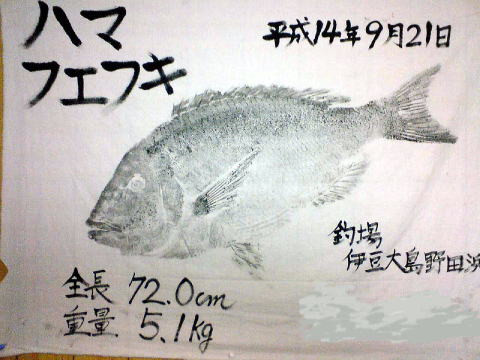 ハマ
フエフキ
平成14年9月21日
釣場
伊豆大島野田浜
全長 72.0cm
重量 5.1kg